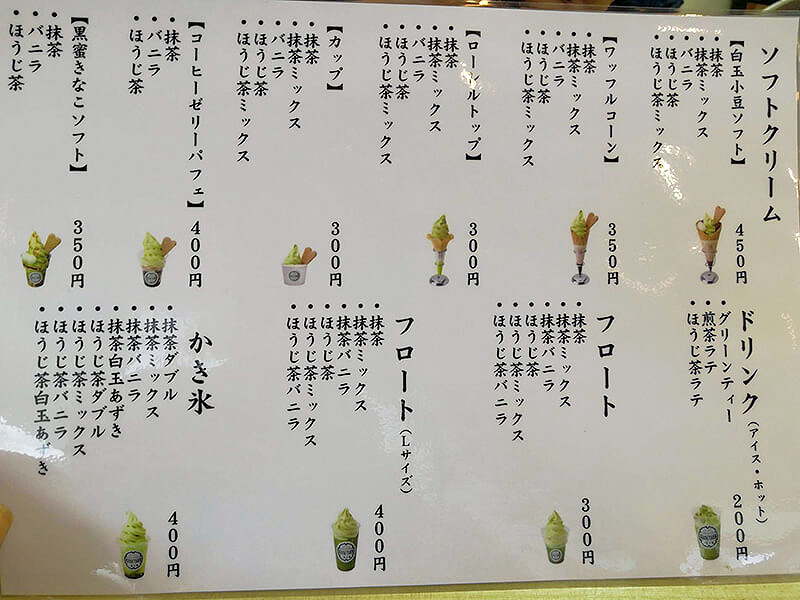 ソフトクリーム
【白玉小豆ソフト】
・抹茶
・抹茶ミックス
・バニラ
・ほうじ茶
・ほうじ茶ミックス
450円
【ワッフルコーン】
・抹茶
・抹茶ミックス
・バニラ
・ほうじ茶
・ほうじ茶ミックス
350円
【ロールトップ】
・抹茶
・抹茶ミックス
・バニラ
・ほうじ茶
・ほうじ茶ミックス
300円
【カップ】
・抹茶
・抹茶ミックス
・バニラ
・ほうじ茶
・ほうじ茶ミックス
300円
【コーヒーゼリーパフェ】
・抹茶
・バニラ
・ほうじ茶
400円
【黒蜜きなこソフト】
・抹茶
・バニラ
・ほうじ茶
350円
ドリンク(アイス・ホット)
・グリーンティー
・煎茶ラテ
・ほうじ茶ラテ
200円
フロート
・抹茶
・抹茶ミックス
・抹茶バニラ
・ほうじ茶
・ほうじ茶ミックス
・ほうじ茶バニラ
300円
フロート(Lサイズ)
・抹茶
・抹茶ミックス
・抹茶バニラ
・ほうじ茶
・ほうじ茶ミックス
・ほうじ茶バニラ
400円
かき氷
・抹茶ダブル
・抹茶ミックス
・抹茶バニラ
・抹茶白玉あずき
・ほうじ茶ダブル
・ほうじ茶ミックス
・ほうじ茶バニラ
・ほうじ茶白玉あずき
400円